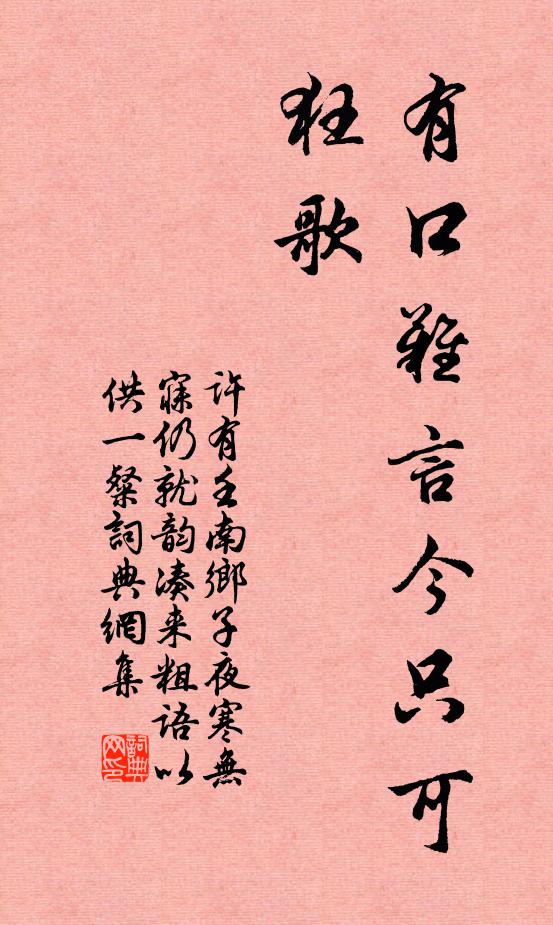 有口難言今只可
狂歌
許有壬南鄉子夜寒無
寐仍就韵凑来粗语以
供一粲詞典網集
詞典
网印